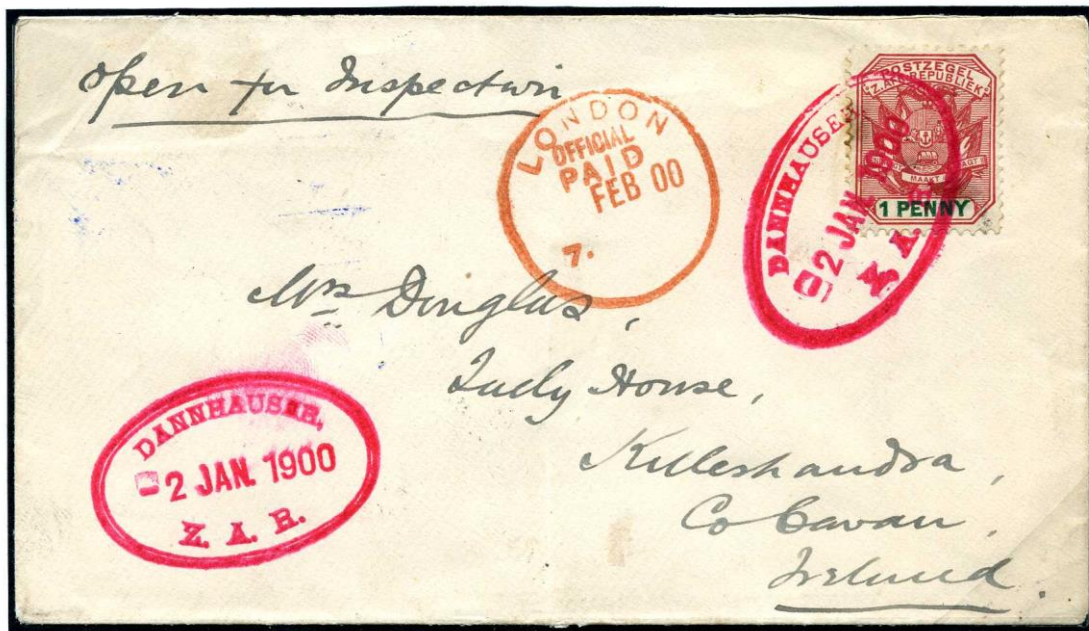 Open for Inspection
LONDON
OFFICIAL
PAID
FEB 00
7.
POSTZEGEL
Z. AFR. REPUBLIEK
MAAKT
1 PENNY
DANNHAUSER,
2 JAN. 1900
Z. A. R.
Mrs Douglas,
House,
Killeshandra,
Co Cavan,
Ireland.
DANNHAUSER,
2 JAN. 1900
Z. A. R.